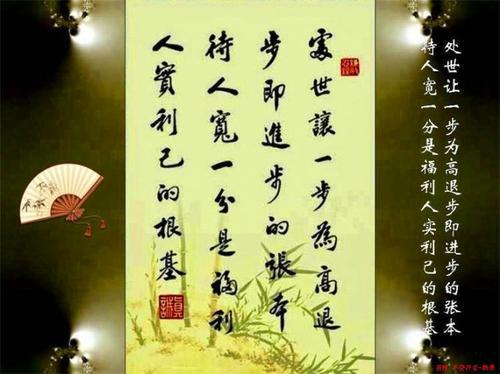 處世讓一步為高退
步即進步的張本
待人寬一分是福利
人實利己的根基
真誠
处世让一步为高退步即进步的张本
待人宽一分是福利人实利己的根基